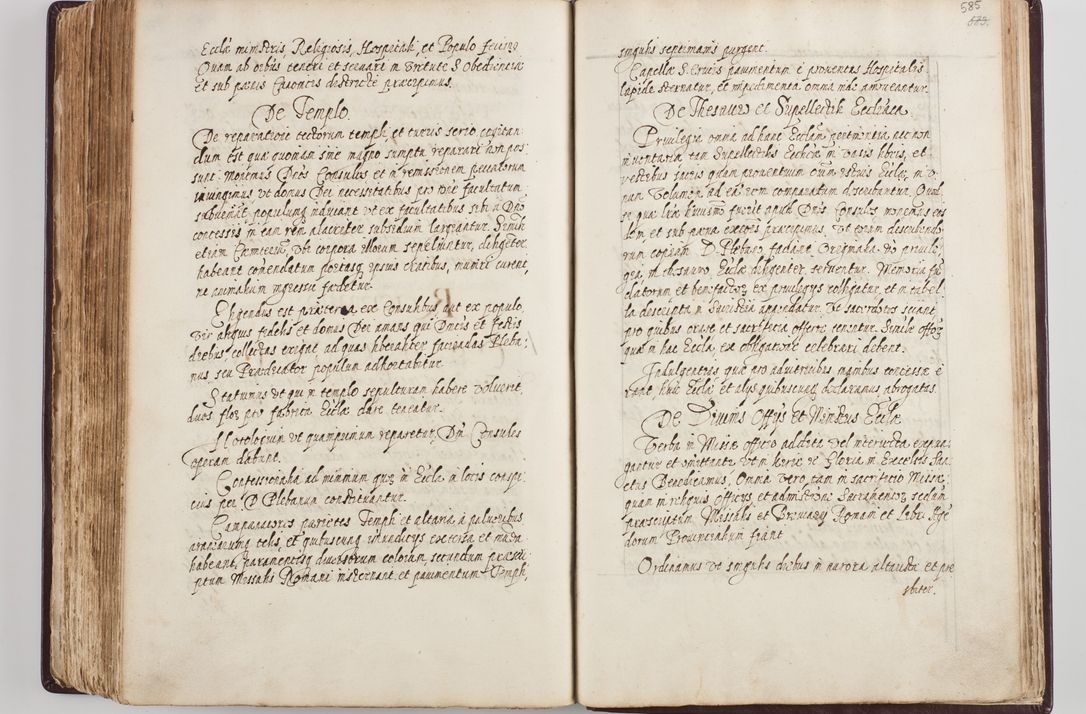 Eccłæ ministris Religiosis, Hospitali, et Populo
Quam ab oībus teneri et servari in virtute S. Obedientiæ
et sub pænis Canonicis districtè præcipimus.
De Templo.
De reparatione tectorum templi, et turris serio cogitan
dum est quæ quoniam sine magno sumptu reparari non pos
sunt. Monemus Dnos Consules et in remissionem peccatorum
iniungimus, vt domus Dei necessitatibus pro facultatum
subveniāt, populumq; inducant vt ex facultatibus sibi à Dno
concessis in eam rem alacriter subsidium largeantur. Simili
etiam vbi corpora illorum sepeliuntur, diligēter
habeant portasq; ipsius cratibus, muniri curent,
ne animalium ingressu fædetur.
Eligendus est præterea ex Consulibus aut ex populo
vir aliquis fidelis et domus Dei amans qui Dnicis et festis
diebus collectas exigat, ad quas liberaliter faciendas Pleba:
nus, seu Prædicator populum adhortabitur.
Statuimus vt qui in templo sepulturam habere voluerit,
duos flor. pro fabrica Eccłæ dare teneatur.
Horologium vt quamprimum reparetur, Dni Consules
operam dabunt.
Confessionalia ad minimum in Eccła in locis conspi
cuis per D. Plebanum constituantur.
Campanatores parietes Templi et altaria à pulveribus
aranearumq; telis, et quibuscunq; immundicijs extersa et munda
habeant, paramentisq; diversorum colorum, secundum præscri
ptum Missalis Romani insternant, et pavimentum Templi,
585
singulis septimanis purgent.
Capellæ S. Crucis pavimentum è proventus Hospitalis
lapide sternatur, et impedimenta omnia inde amoveantur.
De Thesauro et Supellectile Ecclīaca.
Privilegia omnia ad hanc Ecclam pertinentia, nec non
inventaria tam Supellectilis Ecclīæ in vasis libris, et
vestibus sacris quàm proventuum omnium istius Eccłæ, in v
num volumen, ad eius rem comparatum describantur.
se quæ apud Dnos Consules, monemus eos
dem et sub pæna excōis præcipimus, vt eorum describendo
rum copiam D. Plebano faciant, Originalia vero privile
gia in thesauro Eccłæ diligenter serventur. Memoria fū
datorum et benefactorum ex privilegijs colligatur, et in tabel
la descripta in Sacristia appendatur. Vt sacerdotes sciant,
pro quibus orare et sacrificia offerre tenentur. Simile
quæ in hac Eccła, ex obligatione celebrari debent.
Indulgentias quæ pro adiutricibus manibus concessæ e
rant, huic Eccłæ et alijs quibuscunq; declaramus abrogatas.
De Divinis Officijs et Ministris Eccłæ
Verba in Missæ officio addita vel intericta expun
gantur et omittantur vt in Kyrie et Gloria in Excelsis San
ctus Benedicamus, Omnia vero, tam in sacrificio Missæ
quàm in reliquis officijs, et administrōne Sacramentor. secundum
præscriptum Missalis et Breviarij Romani et Libri Age
dorum Provincialium fiant
Ordinamus vt singulis diebus in aurora altarista et pre
sbiter.